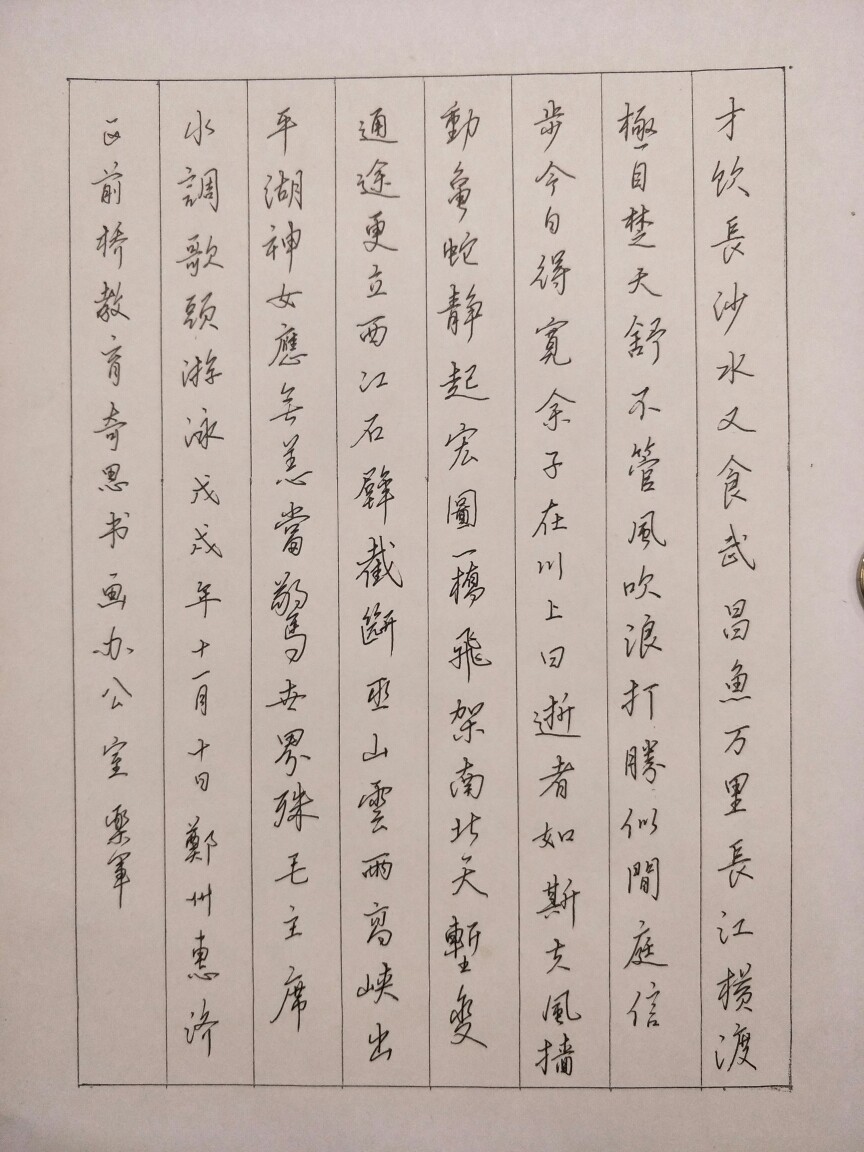 才饮長沙水又食武昌魚万里長江横渡
極目楚天舒不管風吹浪打勝似閒庭信
步今日得寬余子在川上曰逝者如斯夫風墙
動龜蛇静起宏圖一橋飛架南北天塹变
通途更立西江石壁截斷巫山雲雨高峡出
平湖神女應无恙當驚世界殊毛主席
水調歌頭游泳戊戌年十一月十日鄭州惠济
区前桥教育奇思书画办公室栗軍